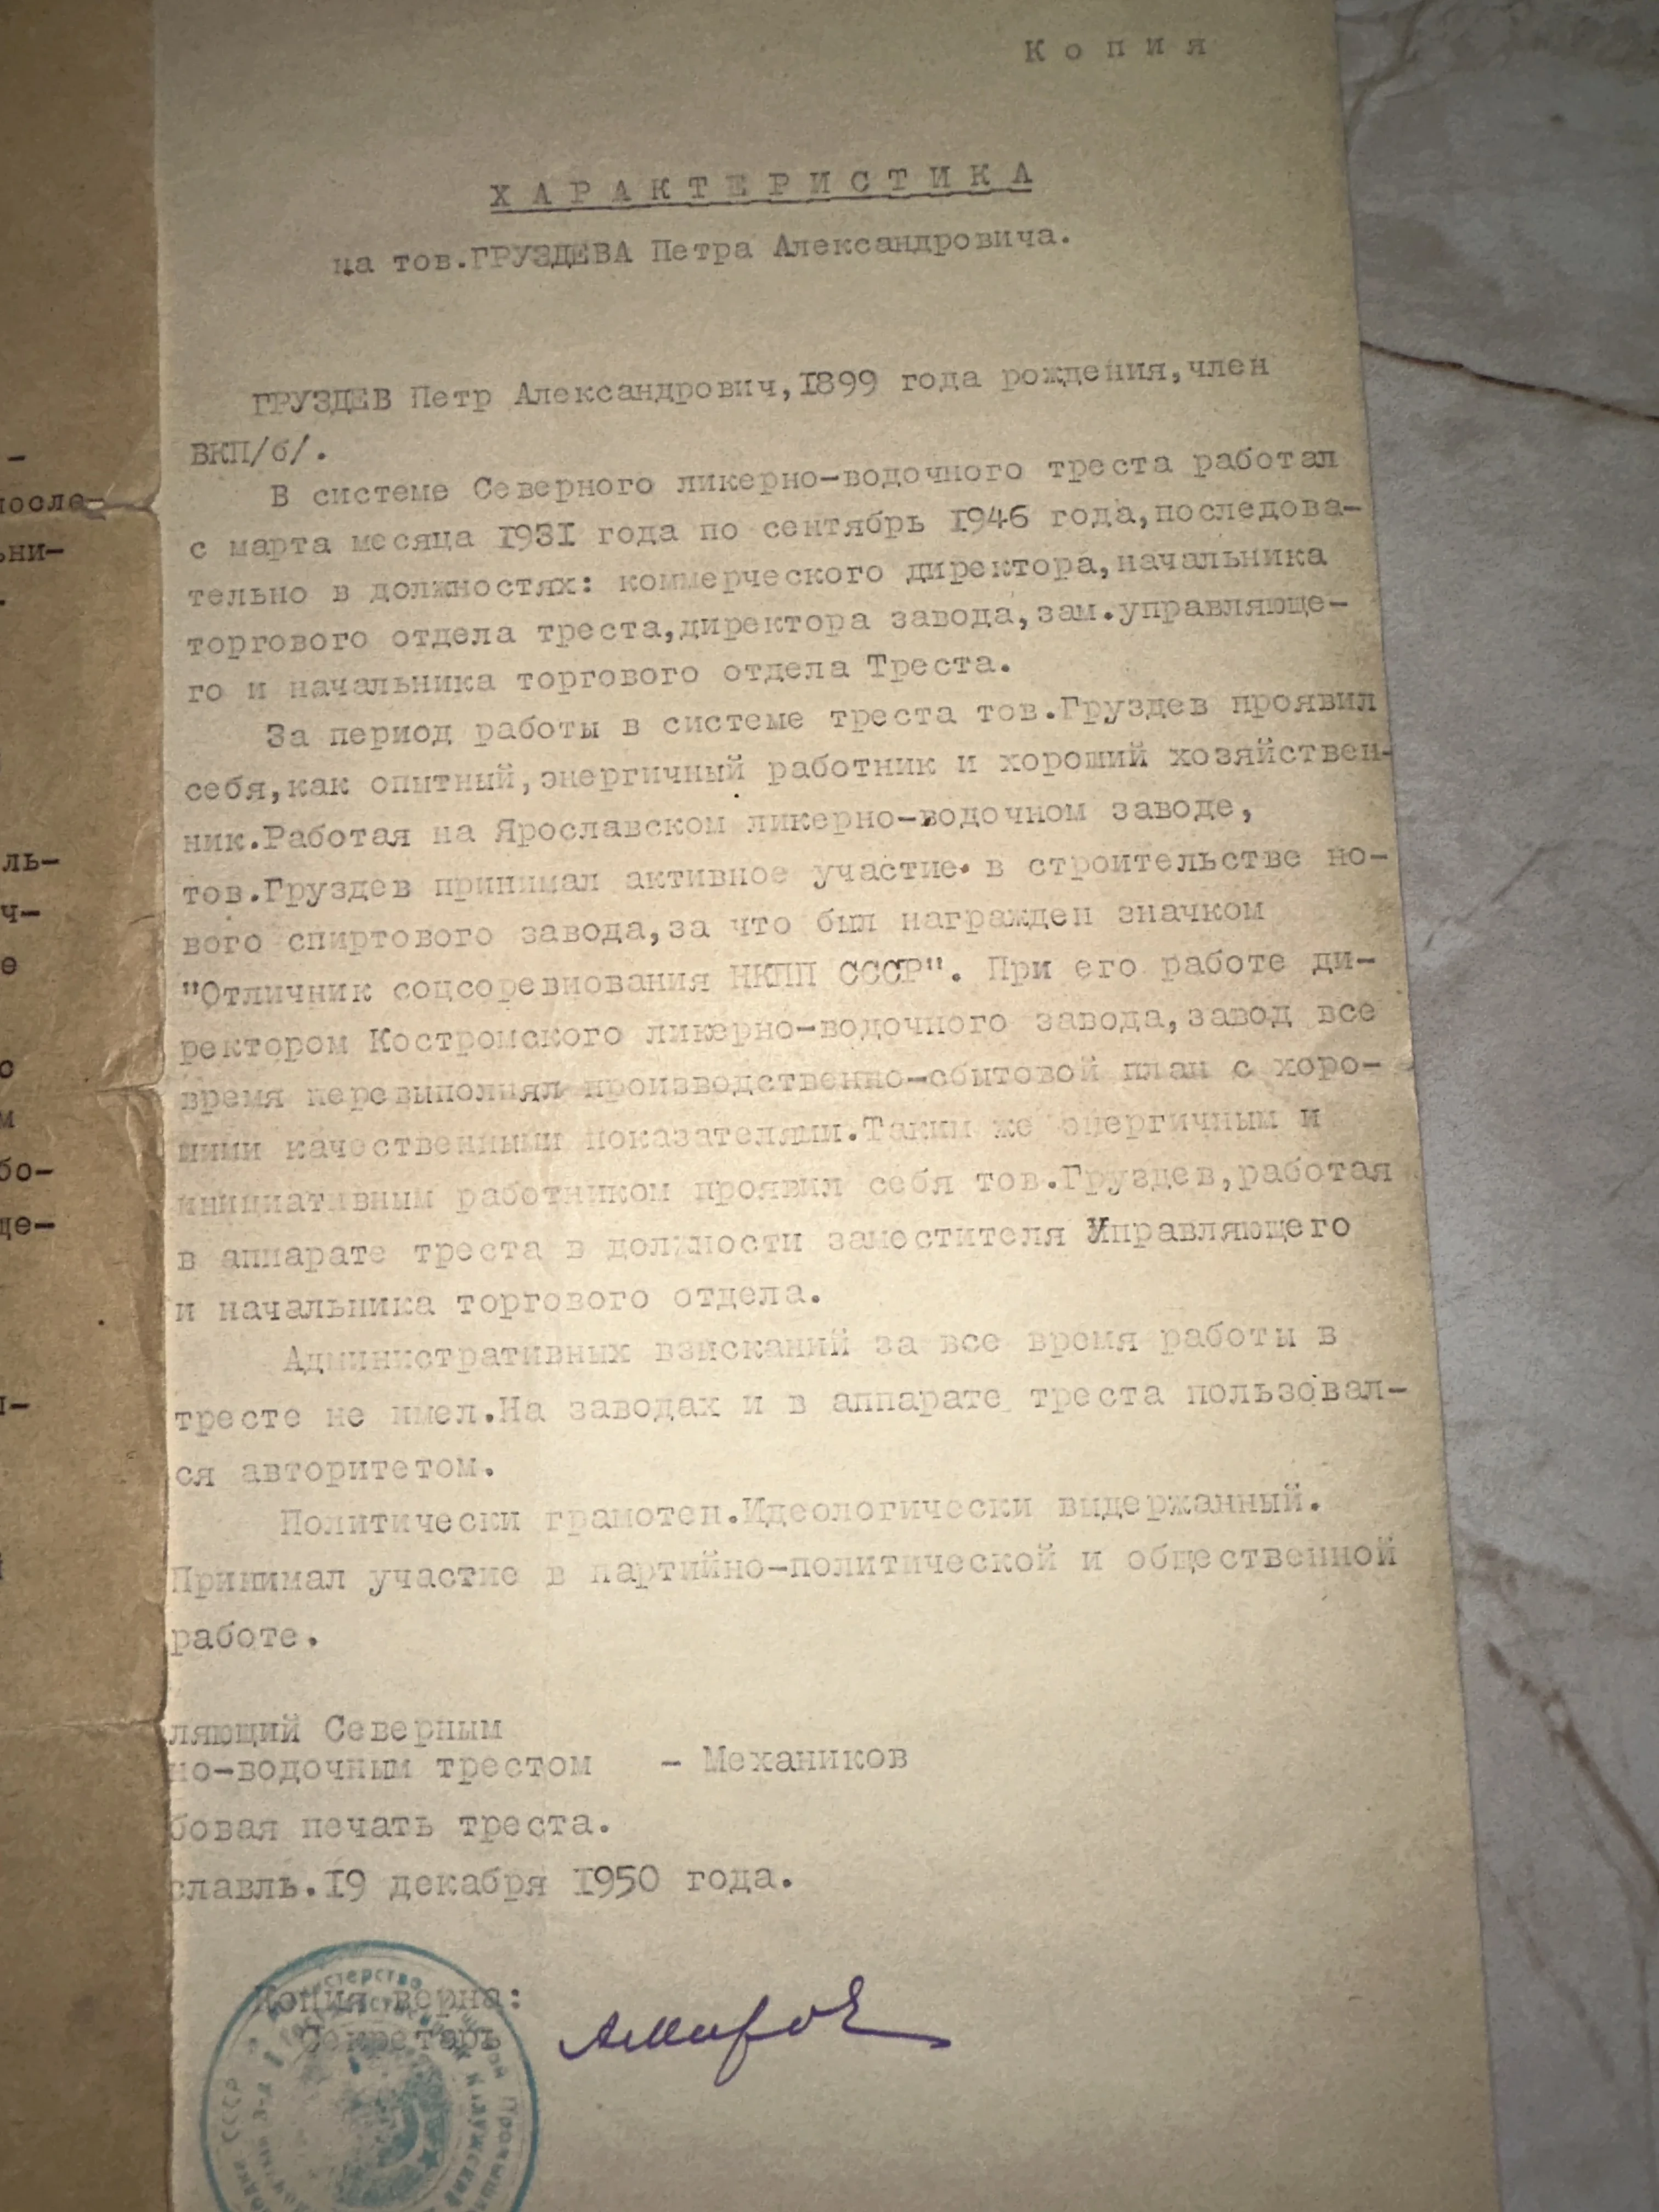 Копия
ХАРАКТЕРИСТИКА
на тов.ГРУЗДЕВА Петра Александровича.
ГРУЗДЕВ Петр Александрович,1899 года рождения,член
ВКП/б/.
В системе Северного ликерно-водочного треста работал
с марта месяца 1931 года по сентябрь 1946 года,последова-
тельно в должностях: коммерческого директора,начальника
торгового отдела треста,директора завода,зам.управляюще-
го и начальника торгового отдела Треста.
За период работы в системе треста тов.Груздев проявил
себя,как опытный,энергичный работник и хороший хозяйствен-
ник.Работая на Ярославском ликерно-водочном заводе,
тов.Груздев принимал активное участие в строительстве но-
вого спиртового завода,за что был награжден значком
"Отличник соцсоревнования НКПП СССР". При его работе ди-
ректором Костромского ликерно-водочного завода,завод все
время перевыполнял производственно-сбытовой план с хоро-
шими качественными показателями.Таким же энергичным и
инициативным работником проявил себя тов.Груздев,работая
в аппарате треста в должности заместителя Управляющего
и начальника торгового отдела.
Административных взысканий за все время работы в
тресте не имел.На заводах и в аппарате треста пользовал-
ся авторитетом.
Политически грамотен.Идеологически выдержанный.
Принимал участие в партийно-политической и общественной
работе.
ляющий Северным
но-водочным трестом - Механиков
бовая печать треста.
славль.19 декабря 1950 года.
Копия верна:
Секретарь
-
после-
ьни-
ль-
ч-
е
о
м
бо-
це-